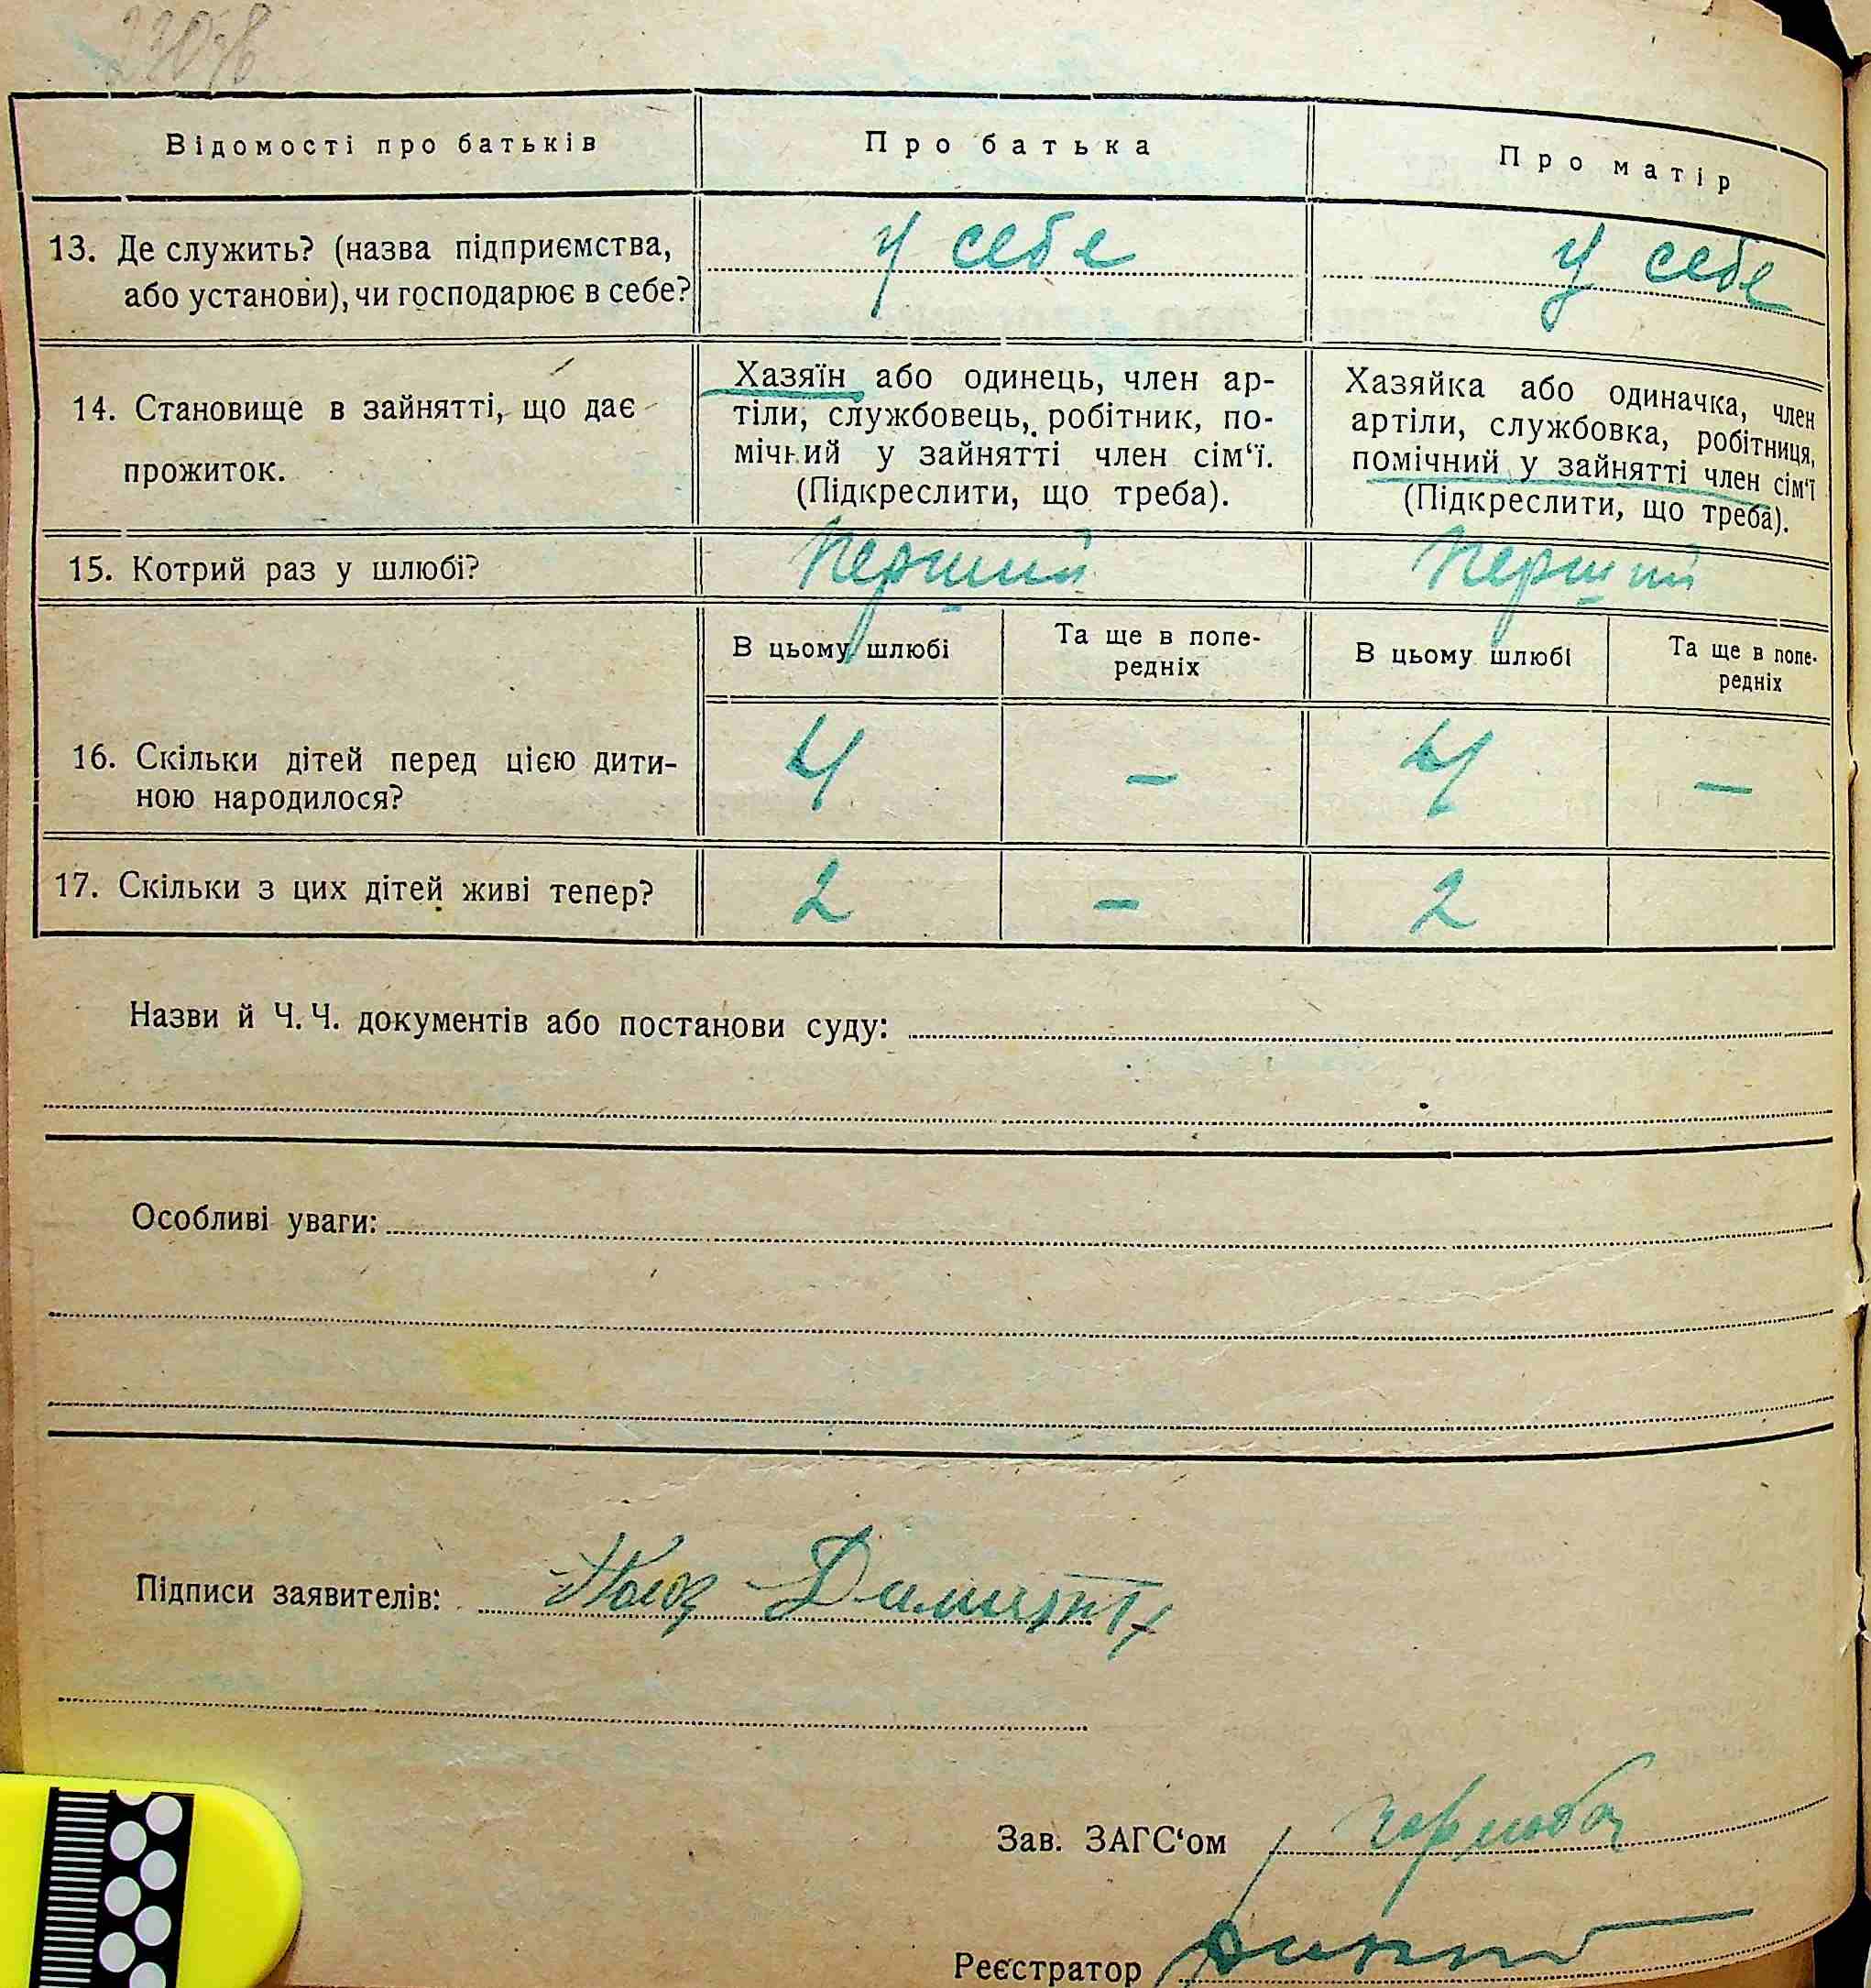 Відомості про батьків
Про батька
Про матір
13. Де служить? (назва підприємства,
або установи), чи господарює в себе?
у себе
у себе
14. Становище в зайнятті, що дає
прожиток.
Хазяїн або одинець, член ар-
тіли, службовець, робітник, по-
мічний у зайнятті член сім‘ї.
(Підкреслити, що треба).
Хазяйка або одиначка, член
артіли, службовка, робітниця,
помічний у зайнятті член сім‘ї
(Підкреслити, що треба).
15. Котрий раз у шлюбі?
Перший
Перший
В цьому шлюбі
Та ще в попе-
редніх
В цьому шлюбі
Та ще в попе-
редніх
16. Скільки дітей перед цією дити-
ною народилося?
4
–
4
–
17. Скільки з цих дітей живі тепер?
2
–
2
Назви й Ч. Ч. документів або постанови суду:
Особливі уваги:
Підписи заявителів:
Зав. ЗАГС‘ом
Реєстратор